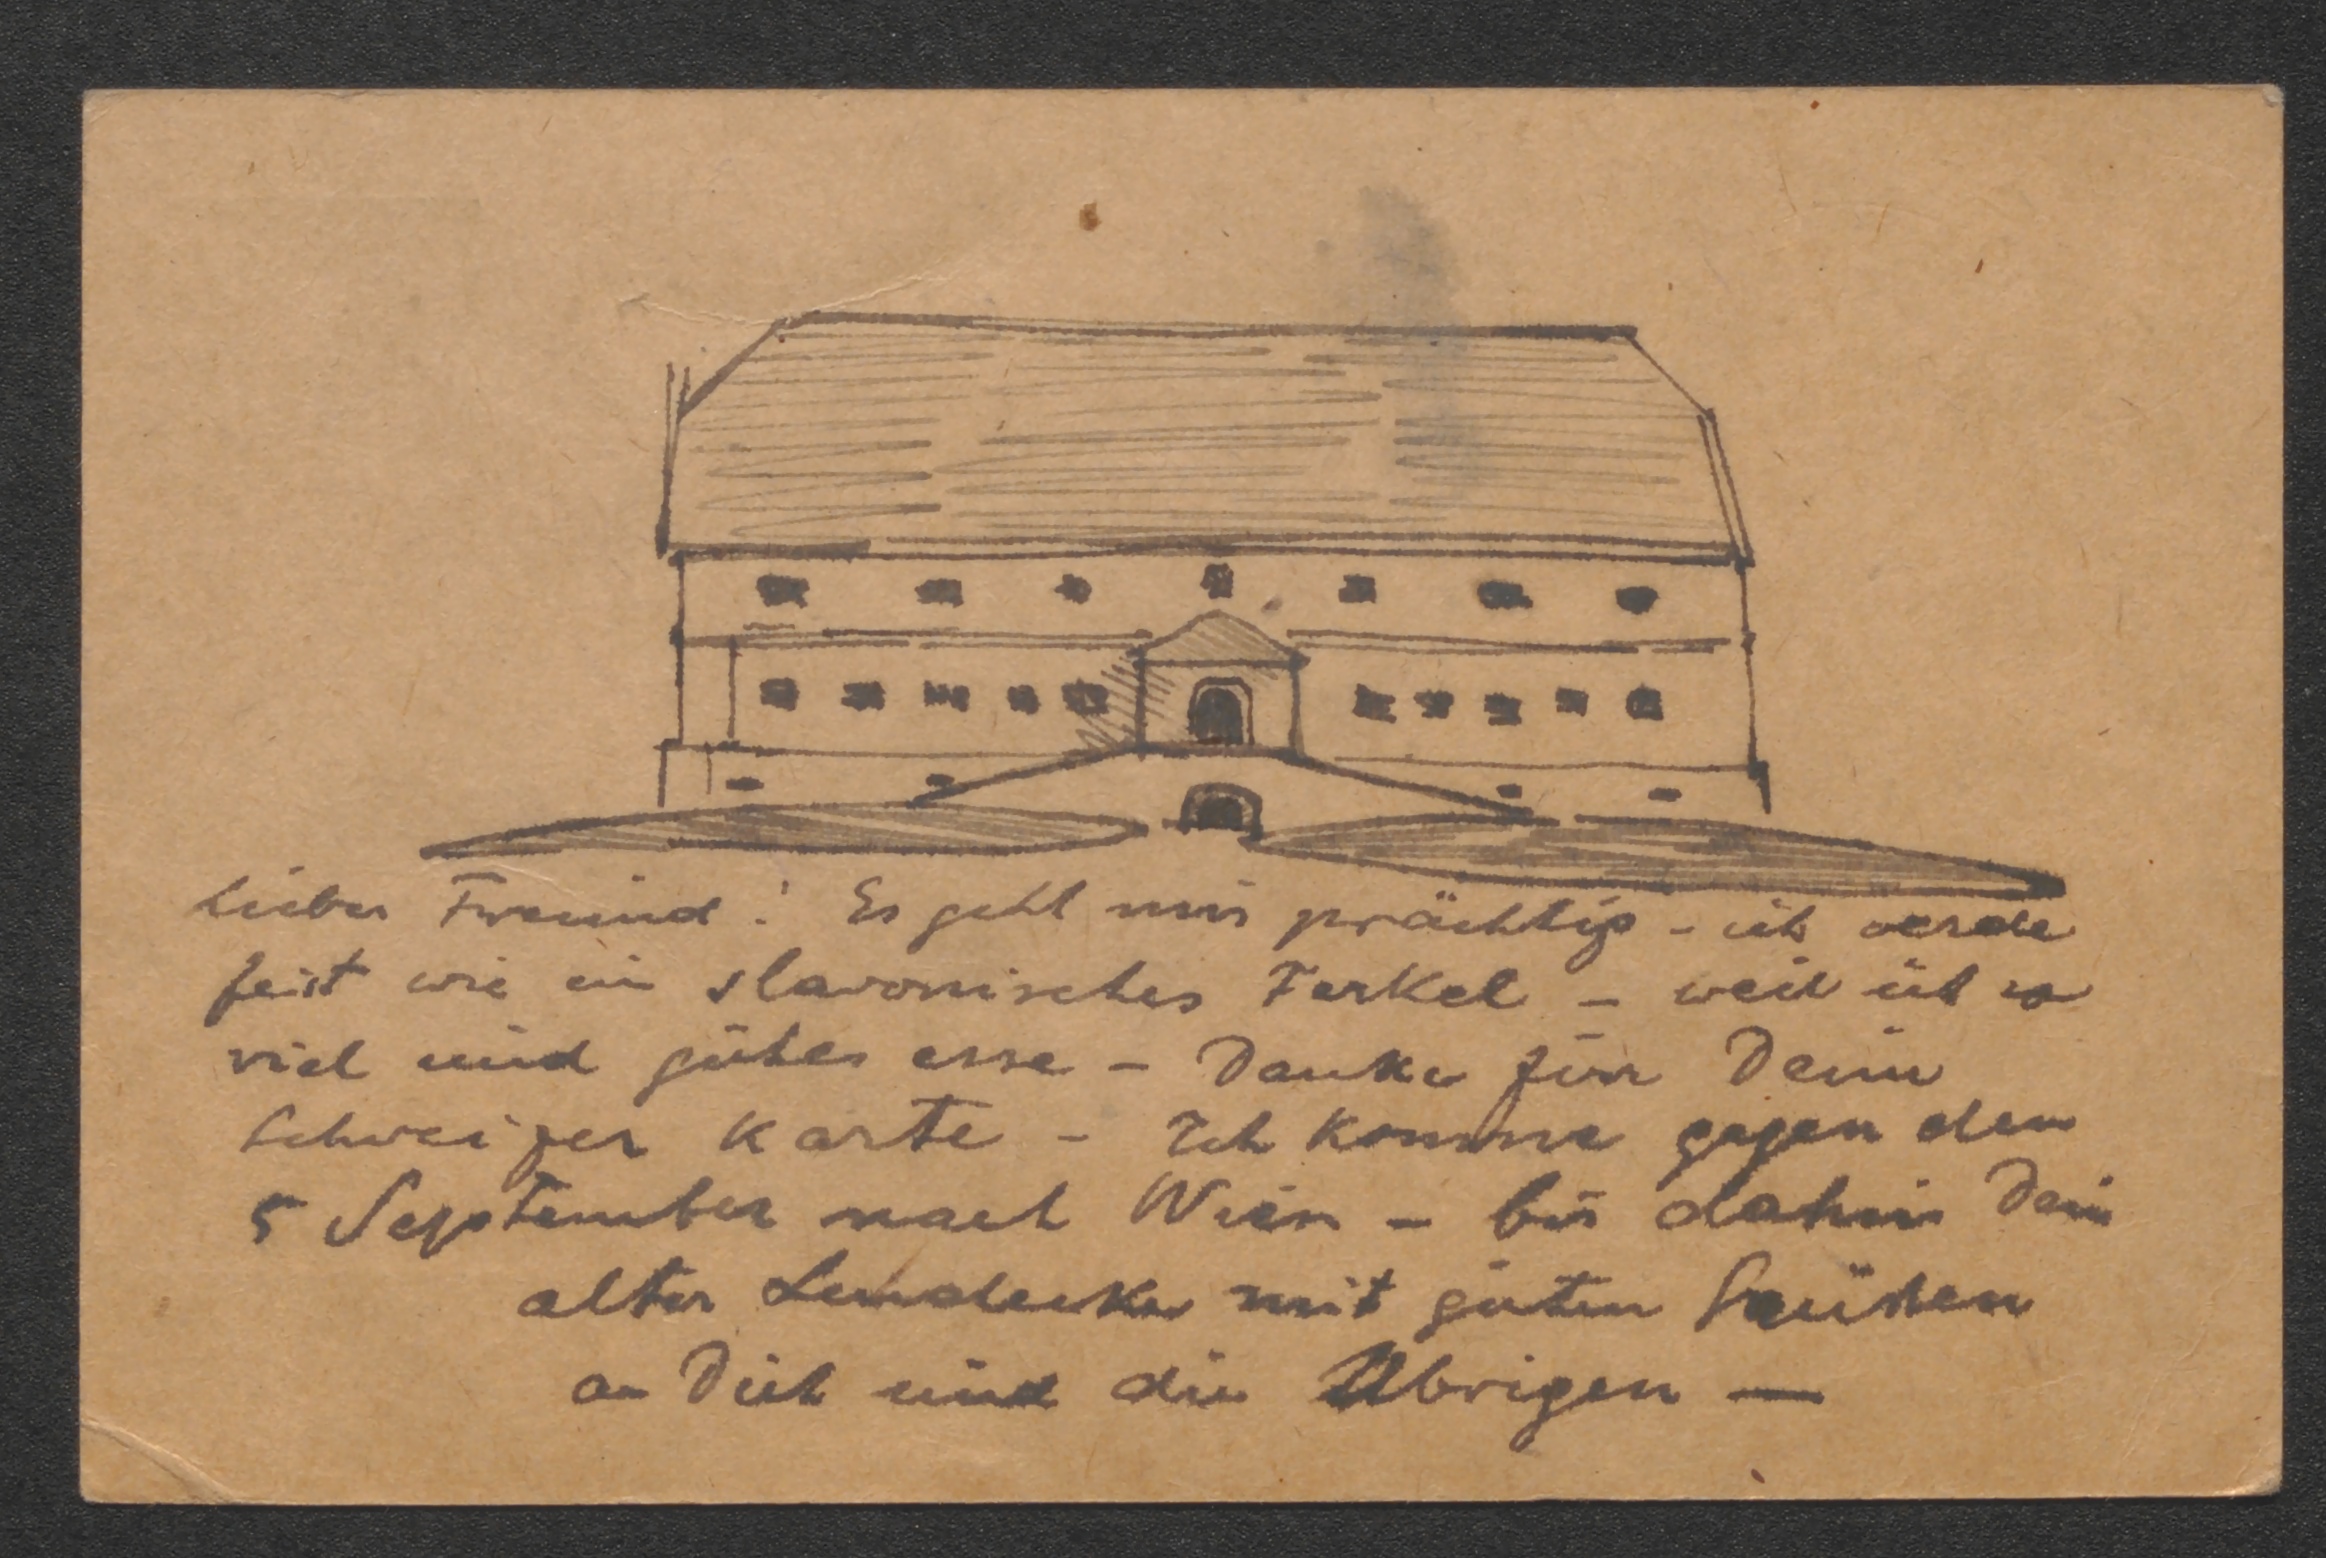 Lieber Freund! Es geht mir prächtig - ich werde
feist wie ein slavonisches Ferkel - weil ich so
viel und gutes esse - Danke für Deine
Schweizer Karte - Ich komme gegen den
5 September nach Wien - bis dahin Dein
alter mit guten Grüßen
an Dich und die Übrigen —